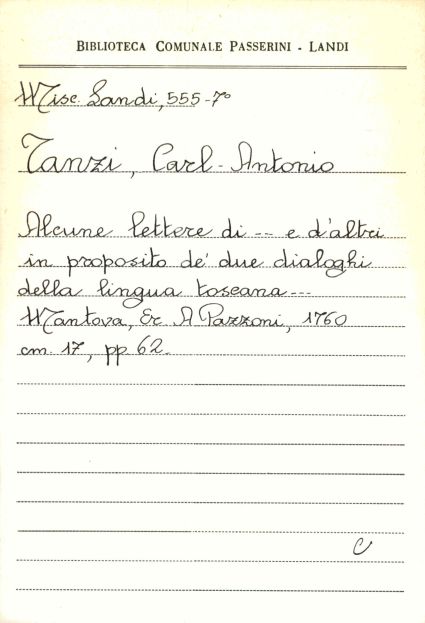 BIBLIOTECA COMUNALE PASSERINI - LANDI
Misc. Landi, 555-7°
Tanzi, Carl-Antonio
Alcune lettere di -- e d'altri
in proposito de' due dialoghi
della lingua toscana---
Mantova, Er. A Pazzoni, 1760
cm. 17, pp 62.
C